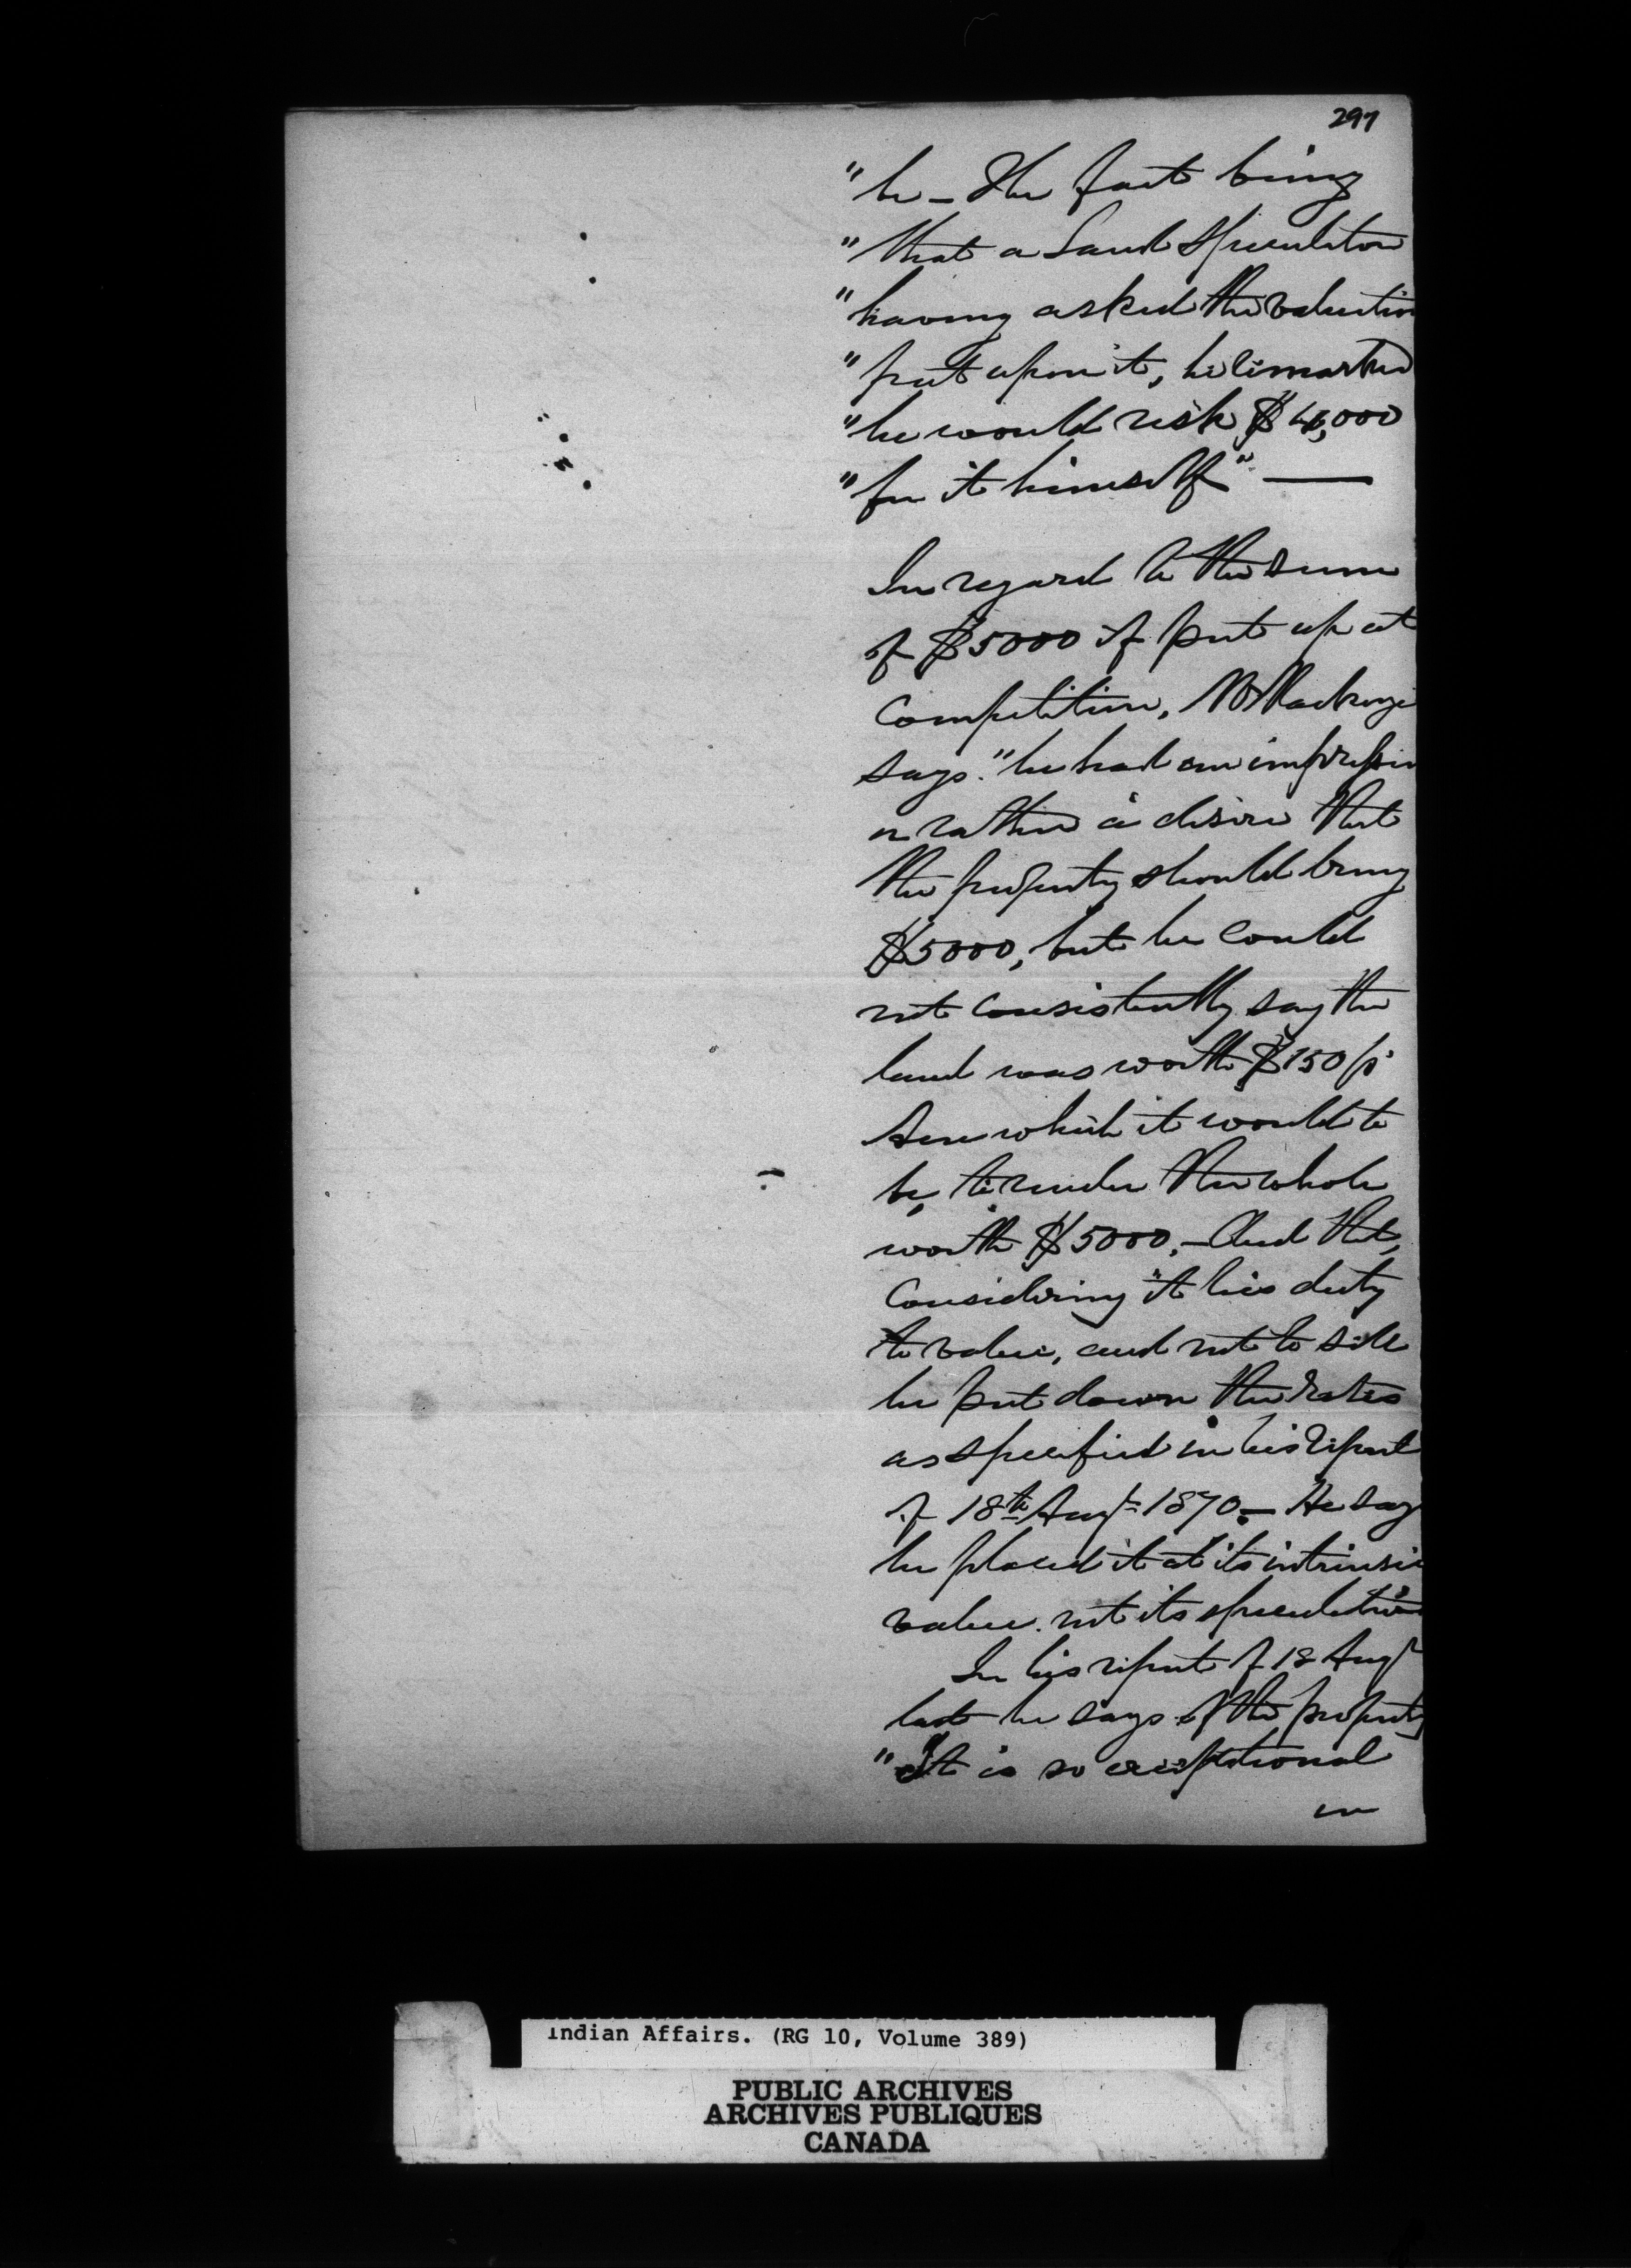 297
"he - The fact being
"that a Land Speculator
"having asked the valuation
"put upon it, he remarked
"he would risk $4,000
"for it himself" —
In regard to the sum
of $5000 if put up at
Competition, Mr Mackenzie
says. "he had an impression
or rather a desire that
the property should bring
$5000, but he could
not consistently say the
land was worth $150 p
Acre which it would to
be, to render the whole
worth $5000, - And that,
Considering it his duty
to value, and not to sell
he put down the rates
as specified in his report
of 18th Augt 1870 - He says
he placed it at its intrinsic
value. not its speculative
In his report of 18 Augt
last he says of the property
"It is so exceptional
in
Indian Affairs. (RG 10, Volume 389)
PUBLIC ARCHIVES
ARCHIVES PUBLIQUES
CANADA